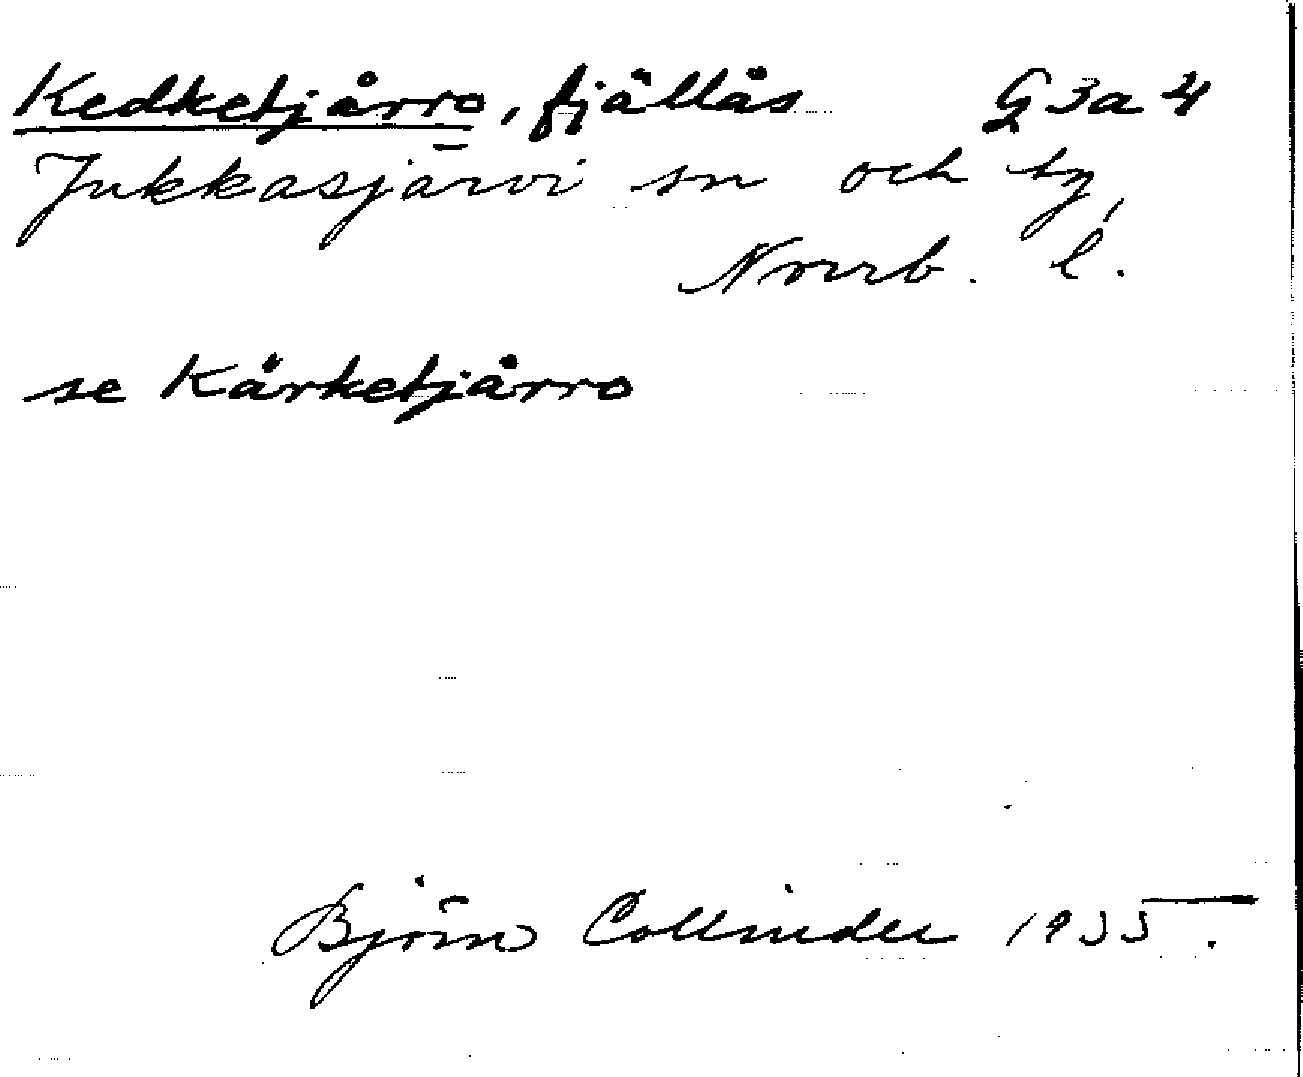 Kedketjårro, fjällås G3a4
Jukkasjärvi sn och by,
Norrb. l.
se Kårketjårro
Björn Collinder 1955.